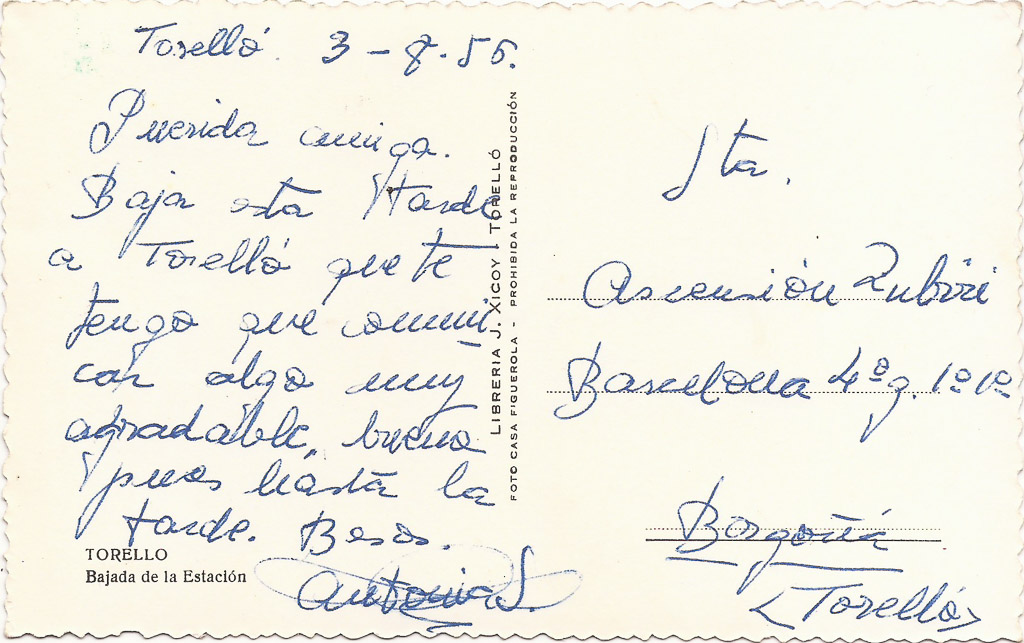 Torelló 3-8-55.
Querida amiga.
Baja esta tarde
a Torelló que te
tengo que comuni
car algo muy
agradable, bueno
pues hasta la
tarde. Besos.
Antonia S.
TORELLO
Bajada de la Estación
LIBRERIA J. XICOY - TORELLÓ
FOTO CASA FIGUEROLA - PROHIBIDA LA REPRODUCCIÓN
Sta.
Ascensión Zubiri
Barcelona 4º g. 1º 1º
Borgoñá
(Torelló)